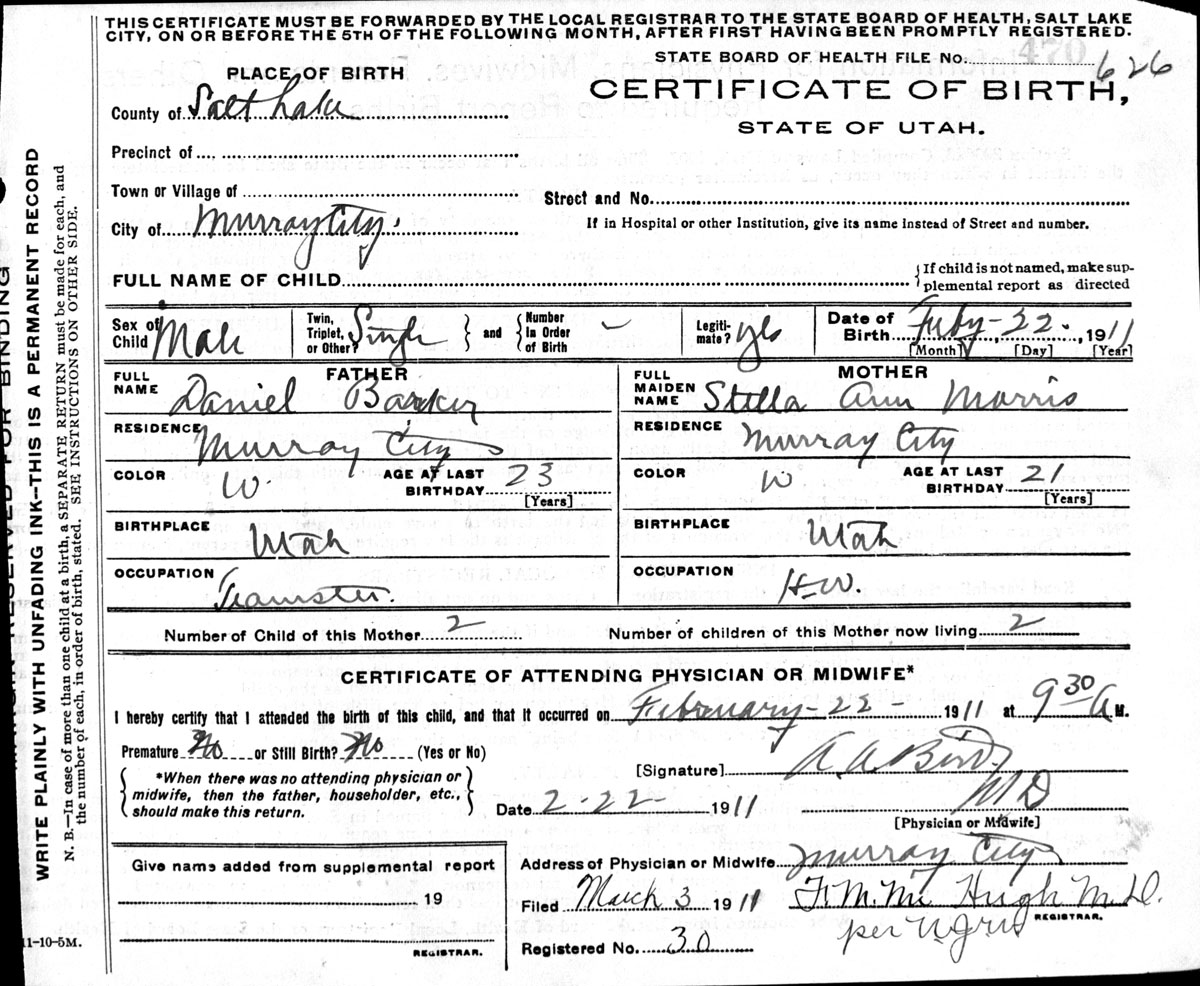 THIS CERTIFICATE MUST BE FORWARDED BY THE LOCAL REGISTRAR TO THE STATE BOARD OF HEALTH, SALT LAKE
CITY, ON OR BEFORE THE 5TH OF THE FOLLOWING MONTH, AFTER FIRST HAVING BEEN PROMPTLY REGISTERED.
STATE BOARD OF HEALTH FILE No. 470 626
PLACE OF BIRTH
CERTIFICATE OF BIRTH,
County of Salt Lake
STATE OF UTAH.
Precinct of
Town or Village of
Street and No.
City of Murray City.
If in Hospital or other Institution, give its name instead of Street and number.
FULL NAME OF CHILD
If child is not named, make supplemental report as directed
Sex of Child Male
Twin, Triplet, or Other? Single
and Number in Order of Birth –
Legitimate? yes
Date of Birth Feby-22. 1911
[Month] [Day] [Year]
FATHER
FULL NAME Daniel Barker
RESIDENCE Murray City
COLOR W. AGE AT LAST BIRTHDAY 23
[Years]
BIRTHPLACE Utah
OCCUPATION Teamster.
MOTHER
FULL MAIDEN NAME Stella Ann Morris
RESIDENCE Murray City
COLOR W AGE AT LAST BIRTHDAY 21
[Years]
BIRTHPLACE Utah
OCCUPATION H-W.
Number of Child of this Mother 2 Number of children of this Mother now living 2
CERTIFICATE OF ATTENDING PHYSICIAN OR MIDWIFE*
I hereby certify that I attended the birth of this child, and that it occurred on February-22- 1911 at 9 30 A M.
Premature No or Still Birth? No (Yes or No)
*When there was no attending physician or
midwife, then the father, householder, etc.,
should make this return.
[Signature] A. A. Bird
MD
Date 2-22 1911
[Physician or Midwife]
Give name added from supplemental report
19
REGISTRAR.
Address of Physician or Midwife Murray City
Filed March 3 1911
M.D.
per
REGISTRAR.
Registered No. 30
11-10-5M.
RESERVED FOR BINDING
WRITE PLAINLY WITH UNFADING INK—THIS IS A PERMANENT RECORD
N. B.—In case of more than one child at a birth, a SEPARATE RETURN must be made for each, and
the number of each, in order of birth, stated. SEE INSTRUCTIONS ON OTHER SIDE.